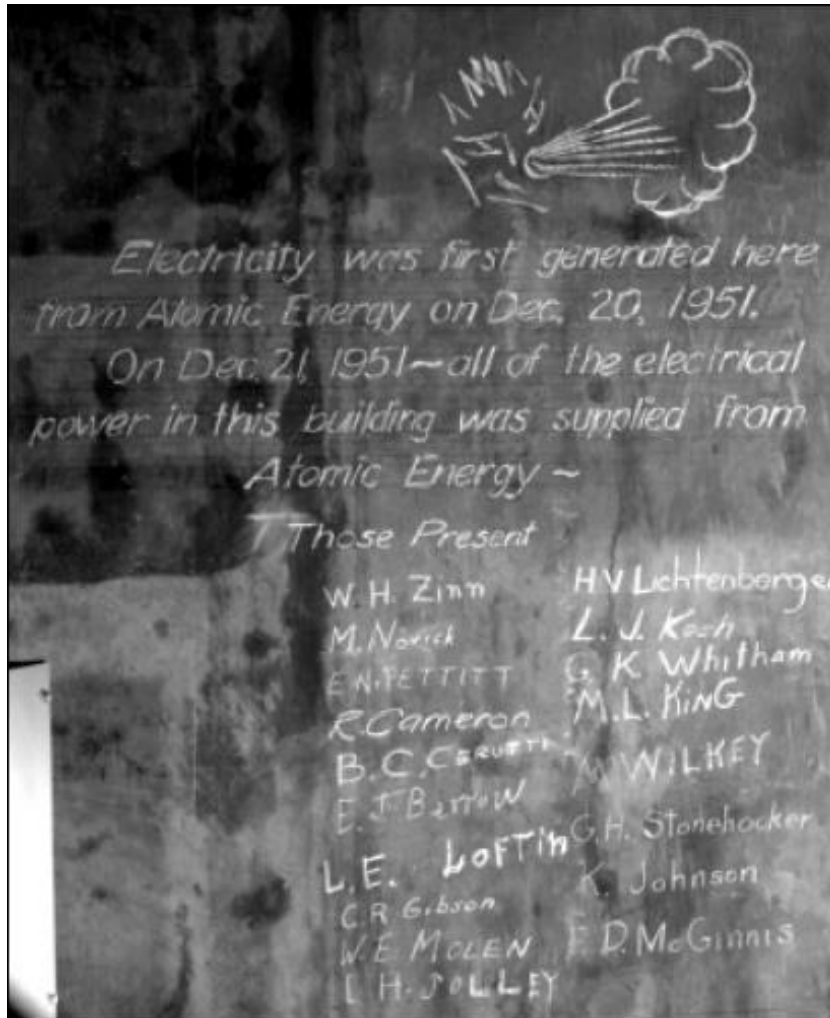 Electricity was first generated here
from Atomic Energy on Dec. 20, 1951.
On Dec. 21, 1951~all of the electrical
power in this building was supplied from
Atomic Energy ~
T Those Present
W. H. Zinn
M. Novick
E. N. PETTITT
R. Cameron
B. C. CERUTTI
E. J. Barrow
L. E. LOFTIN
C. R Gibson
W. E. MOLEN
H. JOLLEY
H V Lichtenberger
L. J. Koch
G. K Whitham
M. L. KING
M WILKEY
G. H. Stonehocker
K. Johnson
F. D. McGinnis